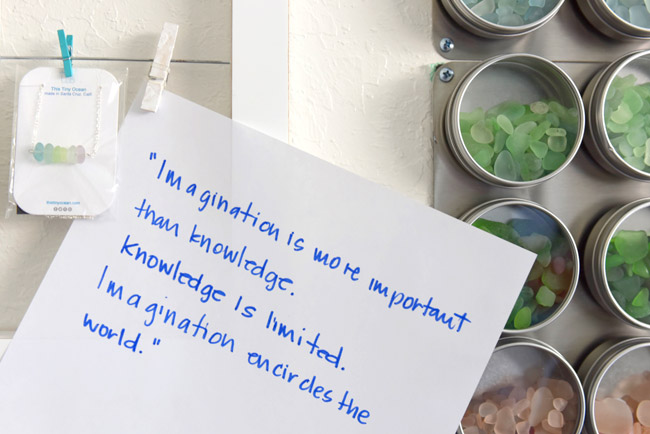 This Tiny Ocean
made in Santa Cruz, Calif
"Imagination is more important
than knowledge.
Knowledge is limited.
Imagination encircles the
world."